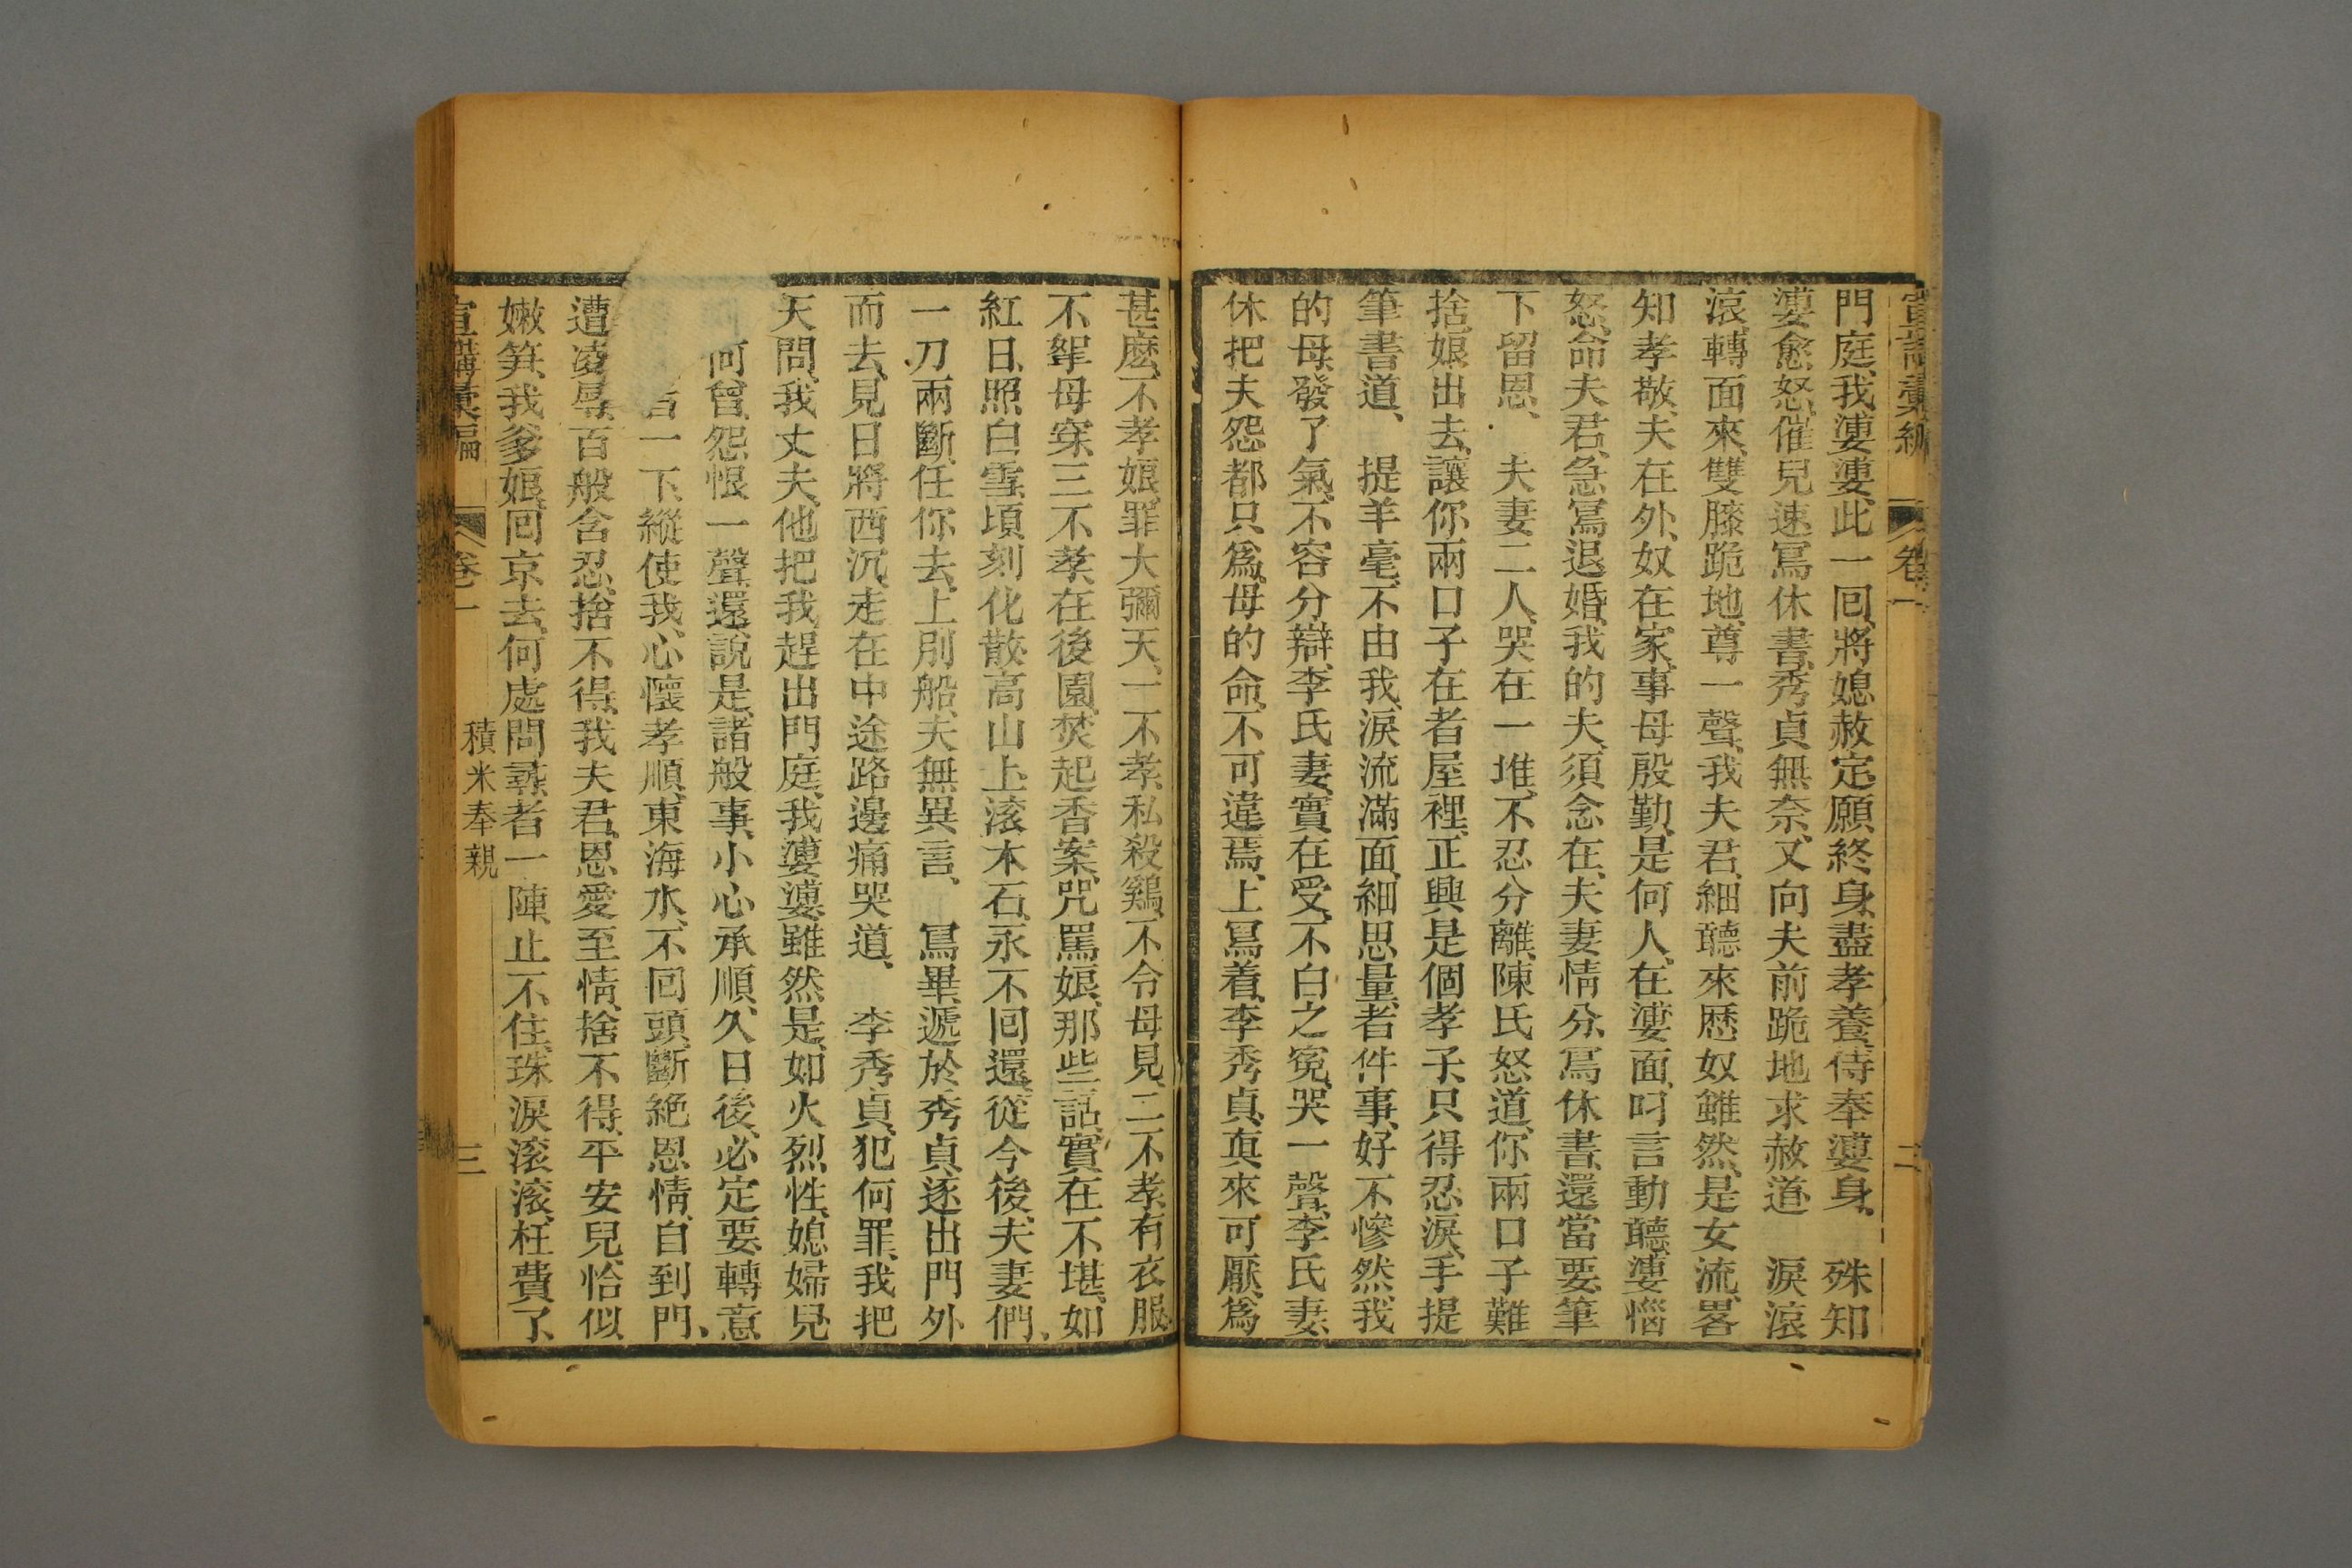 宣講彙編 卷一 二
門庭、我婆婆、此一回、將媳赦、定願終身、盡孝養、侍奉婆身、 殊知
婆愈怒、催兒速寫休書、秀貞無奈、又向夫前跪地求赦道 淚滾
滾、轉面來、雙膝跪地、尊一聲、我夫君、細聽來歷、奴雖然、是女流、畧
知孝敬、夫在外、奴在家、事母殷勤、是何人、在婆面、叼言動聽、婆惱
怒、命夫君、急寫退婚、我的夫、須念在、夫妻情分、寫休書、還當要、筆
下留恩、 夫妻二人、哭在一堆、不忍分離、陳氏怒道、你兩口子難
捨、娘出去、讓你兩口子在者屋裡、正興是個孝子、只得忍淚、手提
筆書道、 提羊毫、不由我、淚流滿面、細思量、者件事、好不慘然、我
的母、發了氣、不容分辯、李氏妻、實在受、不白之冤、哭一聲、李氏妻、
休把夫怨、都只爲、母的命、不可違焉、上寫着、李秀貞、眞來可厭、爲
甚麽、不孝娘、罪大彌天、一不孝、私殺鷄、不令母見、二不孝、有衣服、
不拏母穿、三不孝、在後園、焚起香案、咒罵娘、那些話、實在不堪、如
紅日、照白雪、頃刻化散、高山上、滚木石、永不回還、從今後、夫妻們、
一刀兩斷、任你去、上別船、夫無異言、 寫畢、遞於秀貞、逐出門外
而去、見日將西沉、走在中途路邊痛哭道、 李秀貞、犯何罪、我把
天問、我丈夫、他把我、趕出門庭、我婆婆、雖然是、如火烈性、媳婦兒
何曾、怨恨一聲、還說是、諸般事、小心承順、久日後、必定要、轉意
一下、縱使我、心懷孝順、東海水、不回頭、斷絕恩情、自到門、
遭凌辱、百般含忍、捨不得、我夫君、恩愛至情、捨不得、平安兒、恰似
嫩笋、我爹娘、回京去、何處問尋、者一陣、止不住、珠淚滚滚、枉費了、
宣講彙編 卷一 積米奉親 三